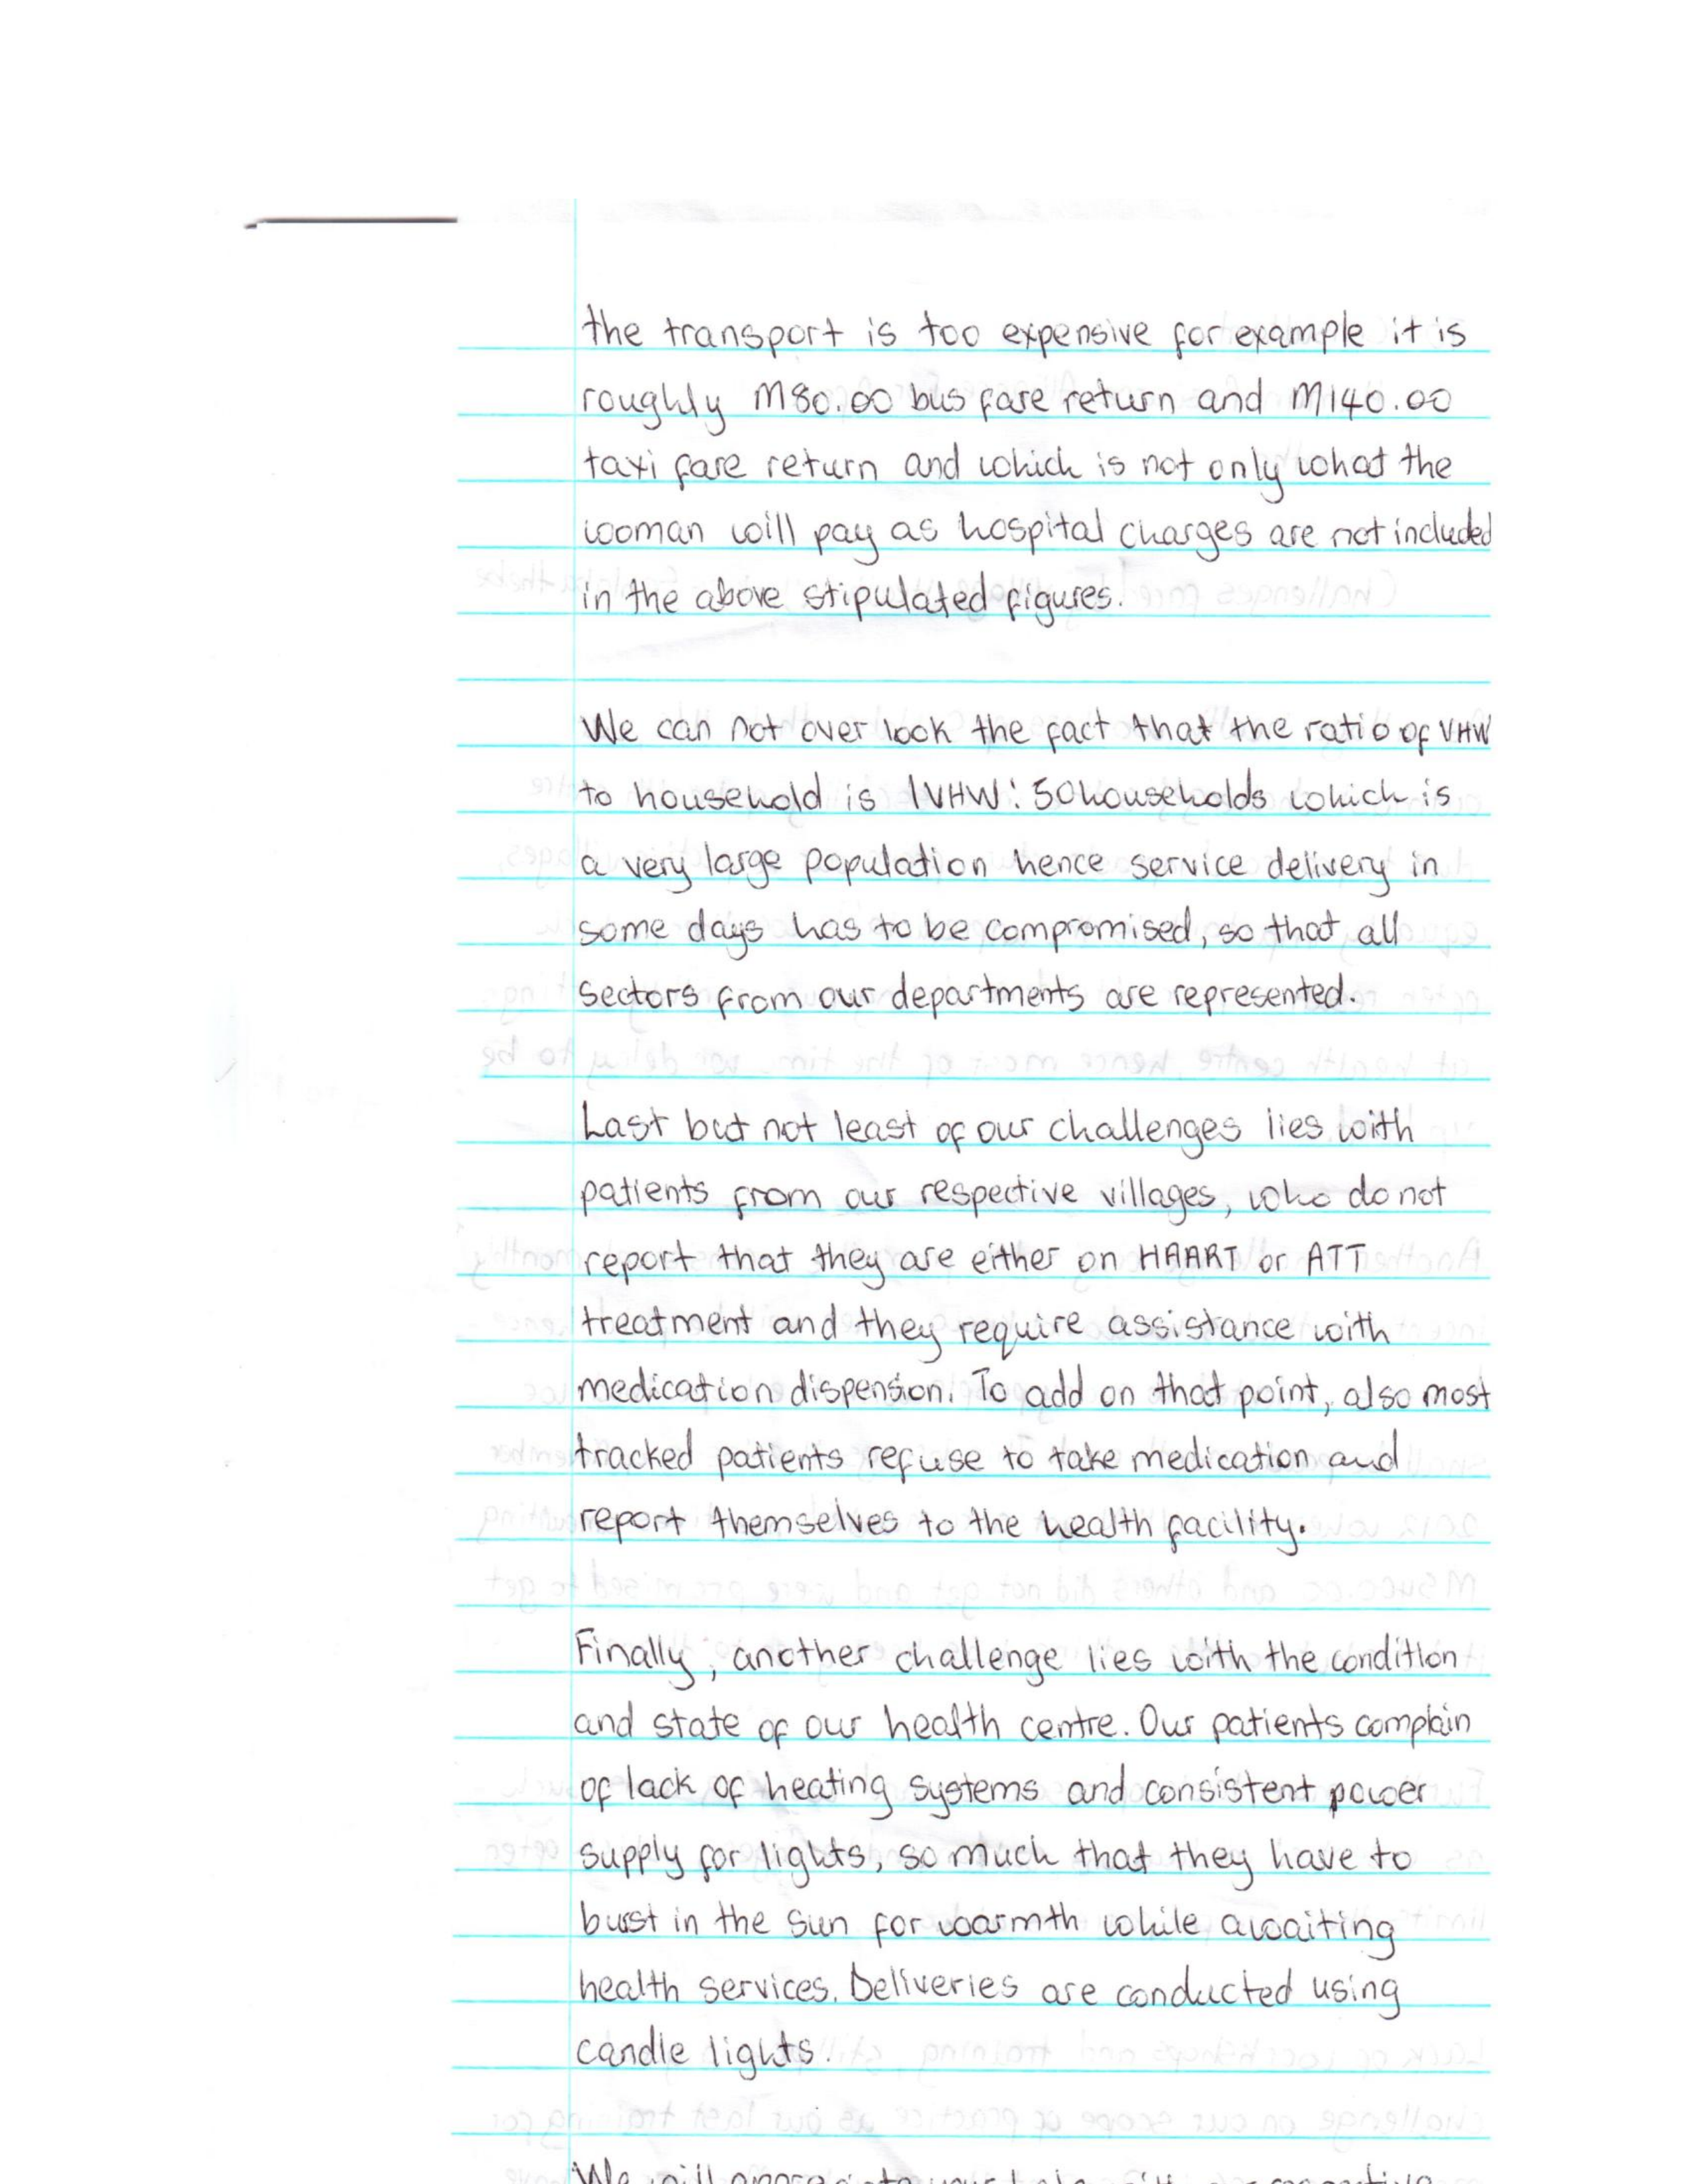 the transport is too expensive for example it is
roughly M80.00 bus fare return and M140.00
taxi fare return and which is not only what the
woman will pay as hospital charges are not included
in the above stipulated figures.
We can not over look the fact that the ratio of VHW
to household is 1VHW: 50 households which is
a very large population hence service delivery in
some days has to be compromised, so that all
sectors from our departments are represented.
Last but not least of our challenges lies with
patients from our respective villages, who do not
report that they are either on HAART or ATT
treatment and they require assistance with
medication dispension. To add on that point, also most
tracked patients refuse to take medication and
report themselves to the health facility.
Finally, another challenge lies with the condition
and state of our health centre. Our patients complain
of lack of heating systems and consistent power
supply for lights, so much that they have to
burst in the sun for warmth while awaiting
health services. Deliveries are conducted using
candle lights.
We will